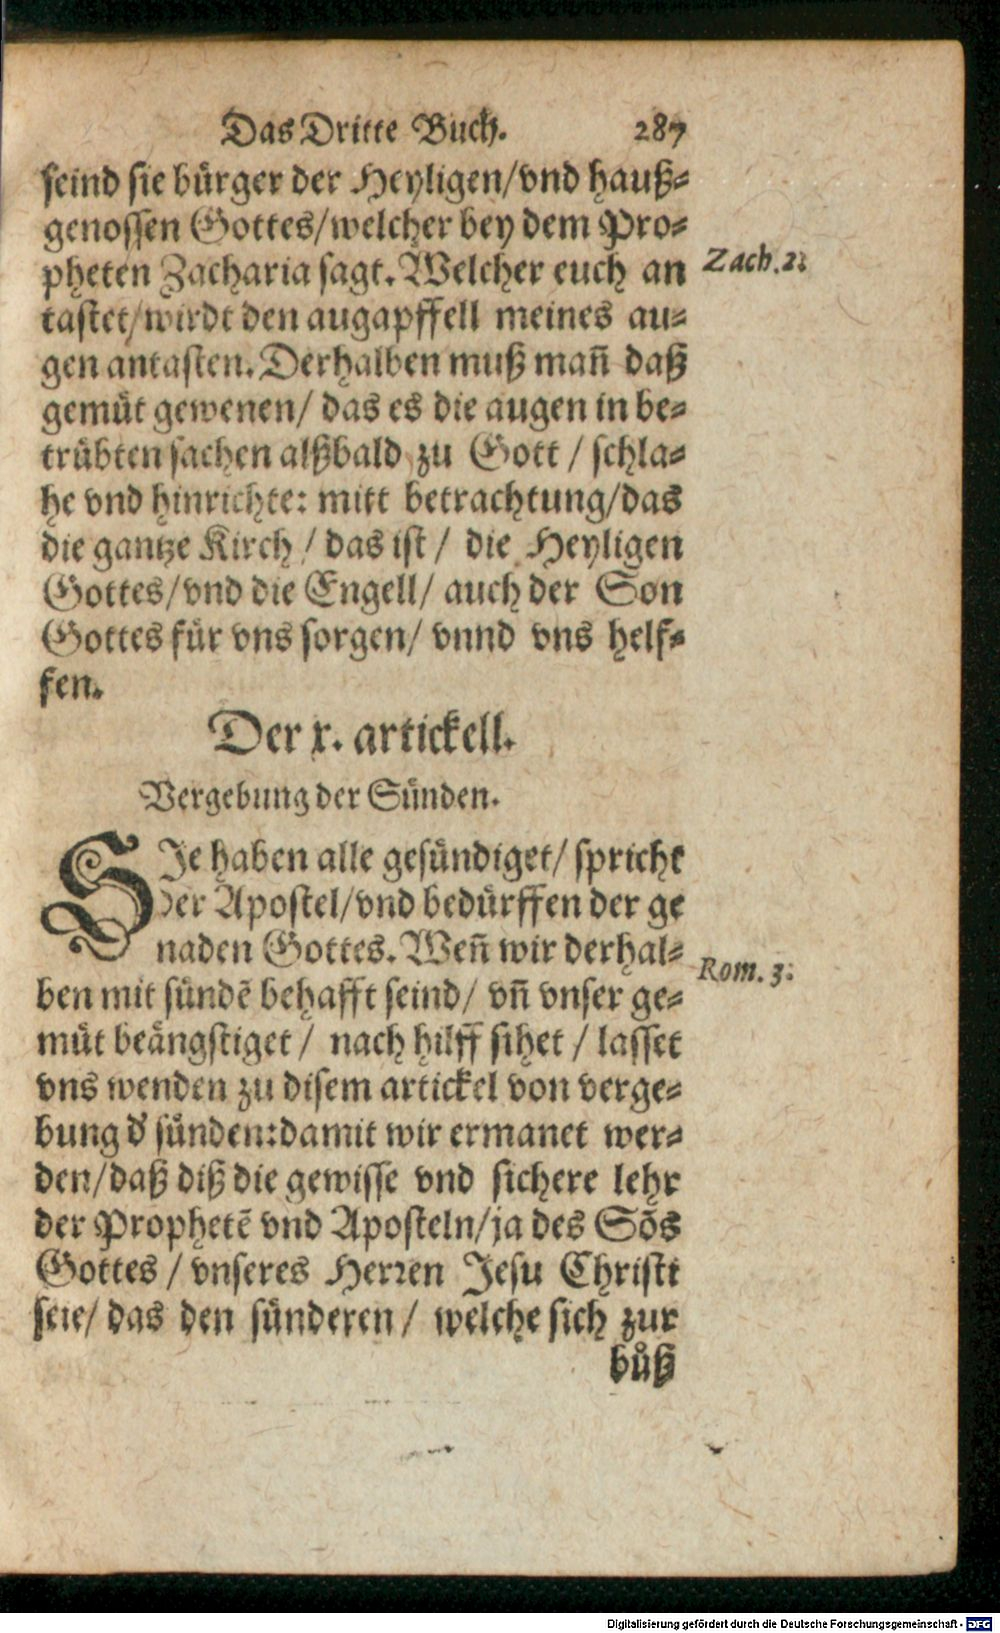 Das Dritte Buch. 287
seind sie bürger der Heyligen/vnd hauß-
genossen Gottes/welcher bey dem Pro-
pheten Zacharia sagt. Welcher euch an
Zach. 2.
tastet/wirdt den augapffell meines au-
gen antasten. Derhalben muß mañ daß
gemüt gewenen/ das es die augen in be-
trübten sachen alßbald zu Gott / schla-
he vnd hinrichte: mitt betrachtung/das
die gantze Kirch / das ist / die Heyligen
Gottes/vnd die Engell/ auch der Son
Gottes für vns sorgen/ vnnd vns helf-
fen.
Der x. artickell.
Vergebung der Sünden.
SIe haben alle gesündiget/ spricht
der Apostel/vnd bedürffen der ge
naden Gottes. Weñ wir derhal-
Rom. 3.
ben mit sündē behafft seind/ vñ vnser ge-
müt beängstiget / nach hilff sihet / lasset
vns wenden zu disem artickel von verge-
bung d' sünden:damit wir ermanet wer-
den/daß diß die gewisse vnd sichere lehr
der Prophetē vnd Aposteln/ja des Sōs
Gottes / vnseres Herren Jesu Christi
seie/ das den sünderen / welche sich zur
bůß
Digitalisierung gefördert durch die Deutsche Forschungsgemeinschaft - DFG